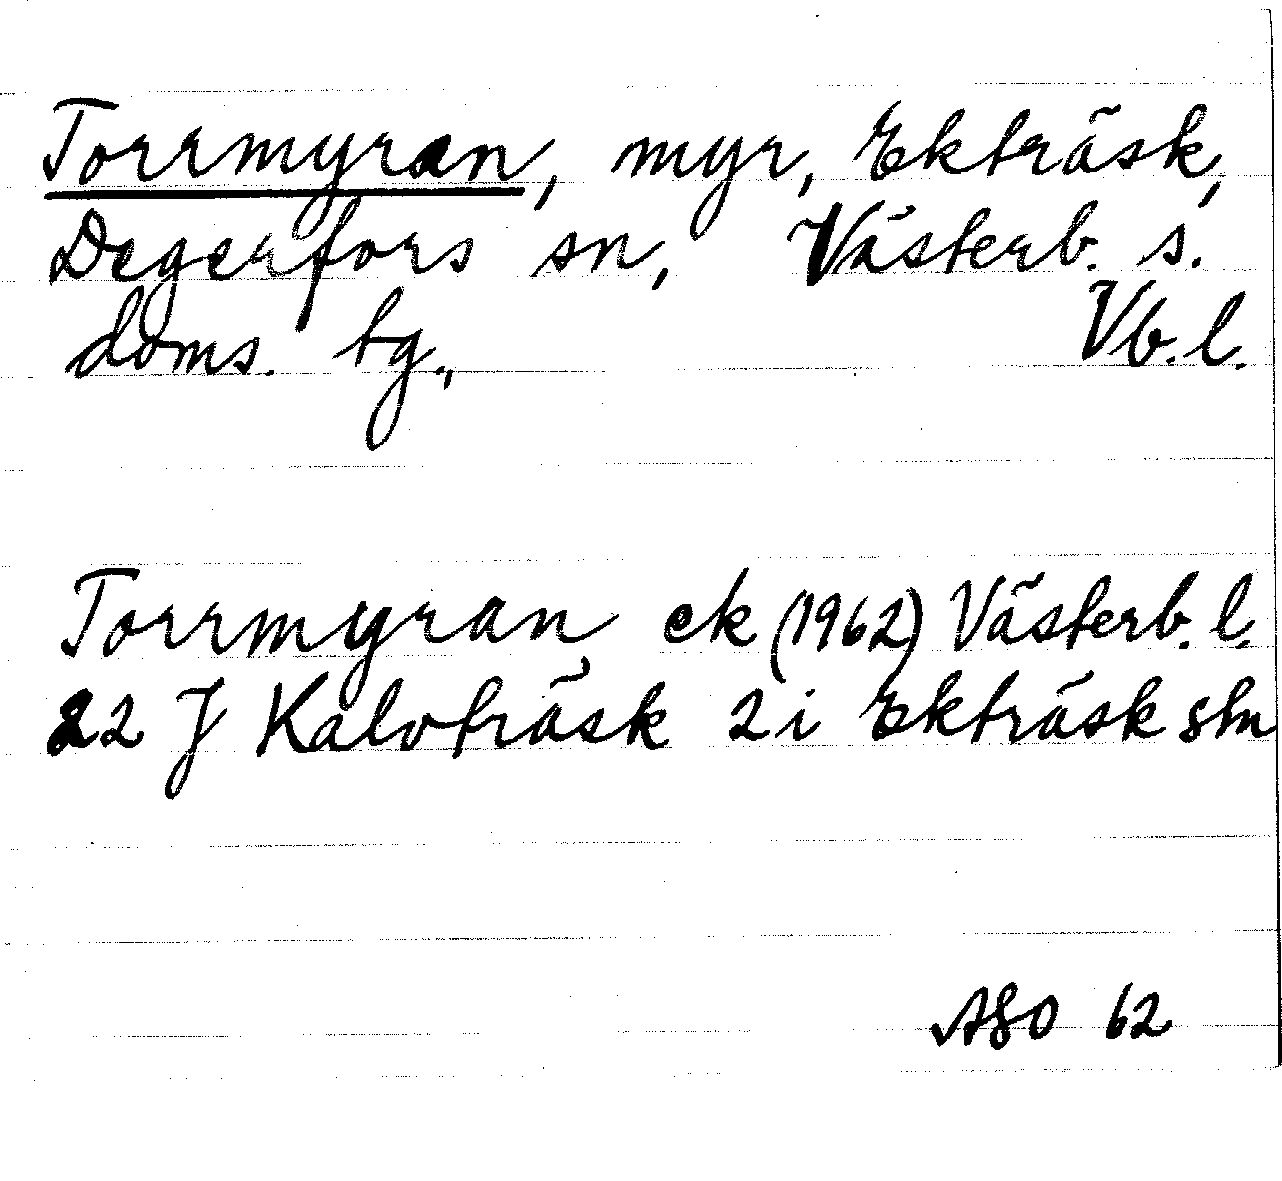 Torrmyran, myr, Ekträsk,
Degerfors sn, Västerb. s.
doms. tg., Vb.l.
Torrmyran ek (1962) Västerb. l.
22 J Kalvträsk 2 i Ekträsk shm
ASO 62